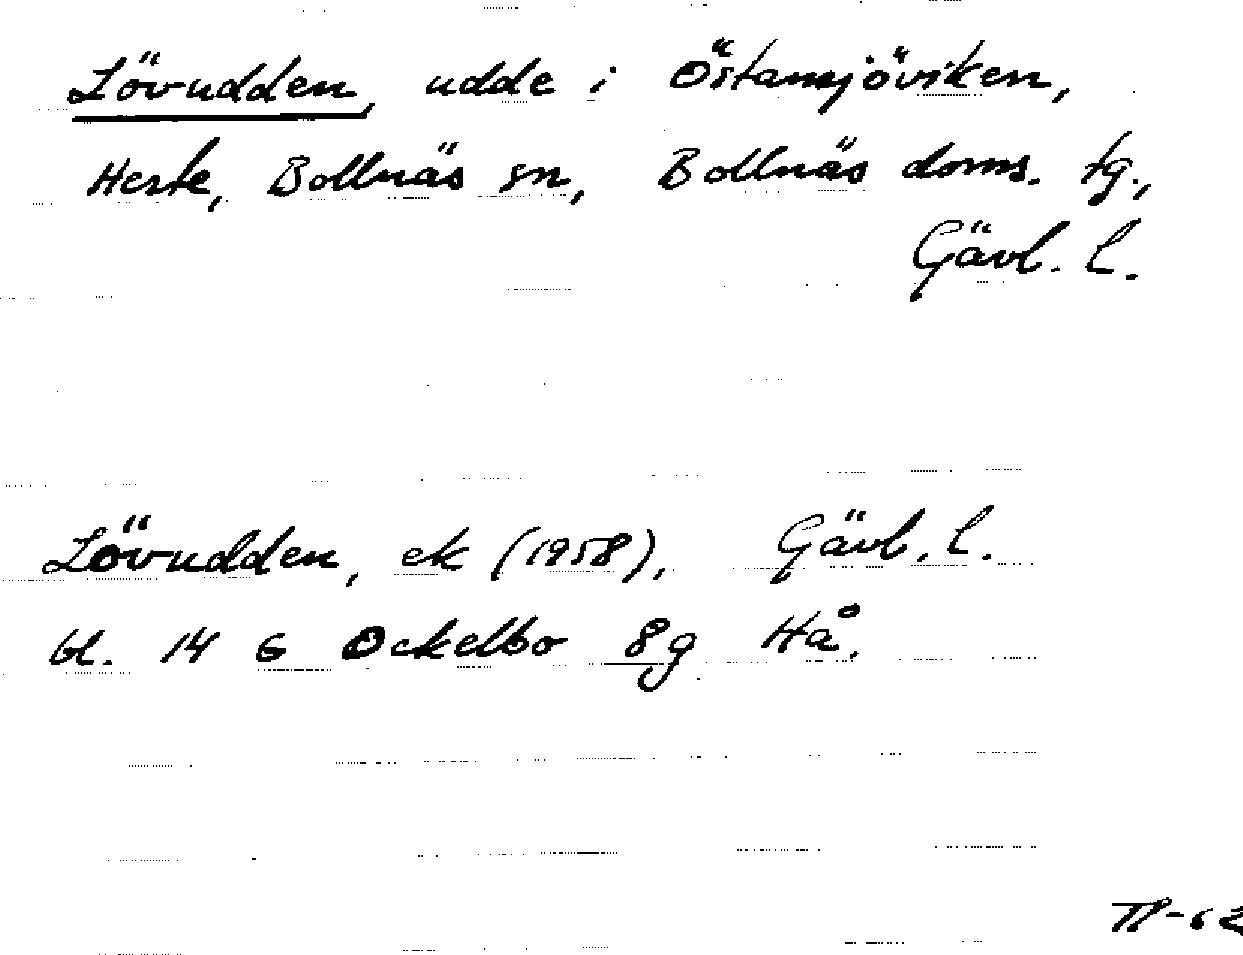 Lövudden, udde i Östansjöviken,
Herte, Bollnäs sn, Bollnäs doms. tg.,
Gävl. l.
Lövudden, ek (1958), Gävl. l.
bl. 14 G Ockelbo 8g Hå.
TP-62